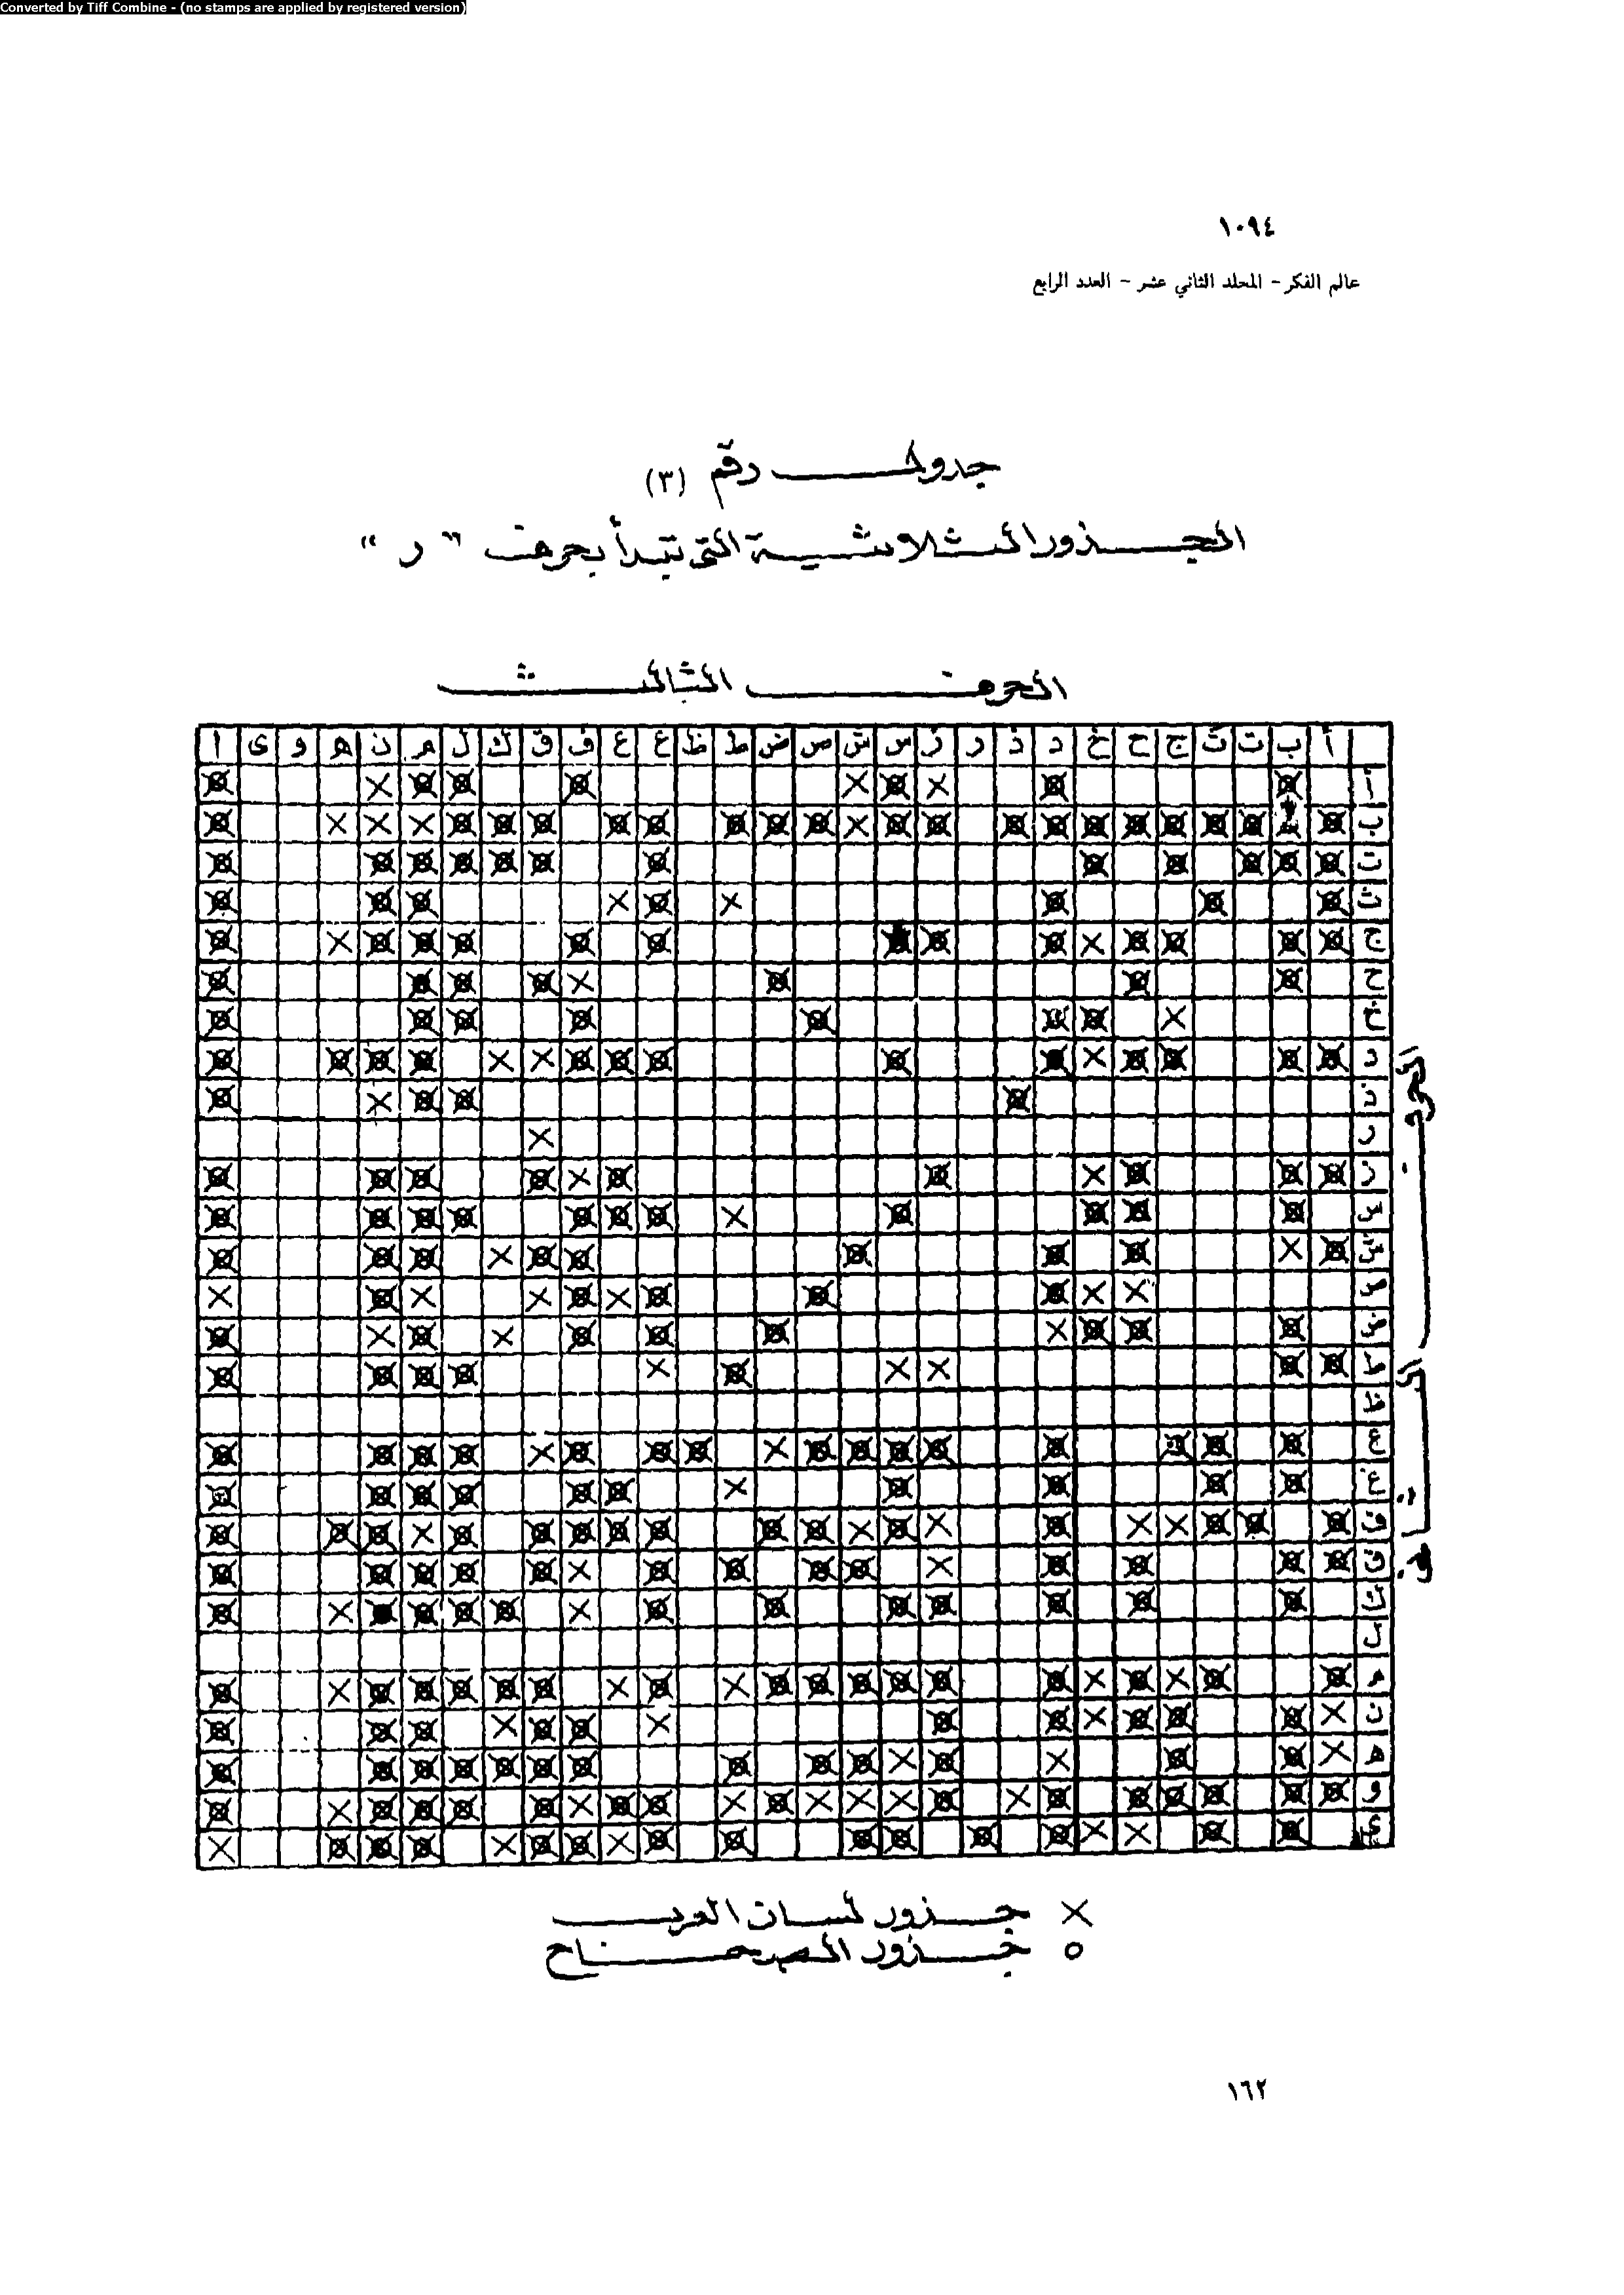 Converted by Tiff Combine - (no stamps are applied by registered version)
١٠٩٤
عالم الفكر - المجلد الثاني عشر - العدد الرابع
جدول رقم (٣)
الجذور الثلاثية التي تبدأ بحرف " ر "
الحرف الثالث
أ ب ت ث ج ح خ د ذ ر ز س ش ص ض ط ظ ع غ ف ق ك ل م ن ه و ى ا
أ
ب
ت
ث
ج
ح
خ
د
ذ
ر
ز
س
ش
ص
ض
ط
ظ
ع
غ
ف
ق
ك
ل
م
ن
ه
و
ى
الحرف الثاني
× جذور لسان العرب
o جذور الصحاح
١٦٢